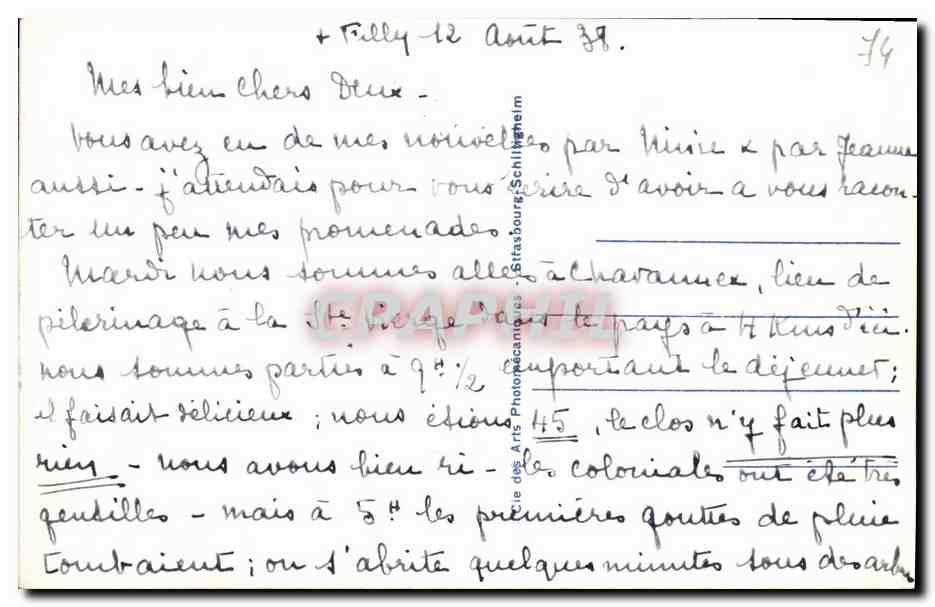 + Filly 12 Août 38.
74
Mes bien chers Deux -
Vous avez eu de mes nouvelles par Ninie & par Jeanne
aussi - j'attendais pour vous écrire d'avoir a vous racon-
ter un peu mes promenades.
Mardi nous sommes allées à Chavannex, lieu de
pèlerinage à la Ste Vierge dans le pays à 4 Kms d'ici.
nous sommes parties à 9H 1/2 emportant le déjeuner ;
il faisait délicieux ; nous étions 45, le clos n'y fait plus
rien - nous avons bien ri - les coloniales ont été très
gentilles - mais à 5H les premières gouttes de pluie
tombaient ; on s'abrite quelques minutes sous des arbres
Cie des Arts Photomécaniques - Strasbourg-Schiltigheim
CPAPHIL